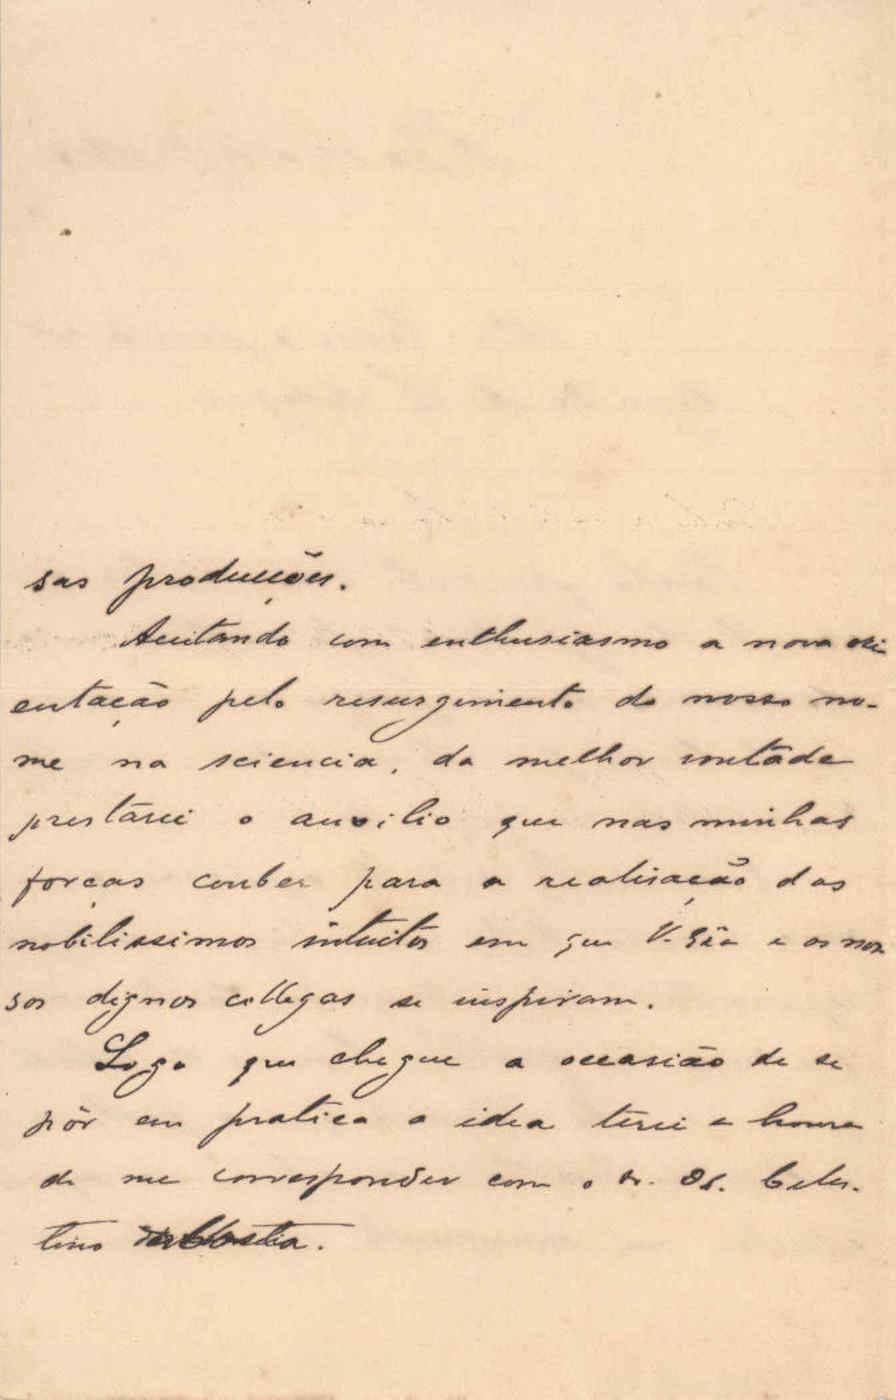 sas producções.
Acceitando com enthusiasmo a nova ori
entação pelo resurgimento do nosso no-
me na sciencia, da melhor vontade
prestarei o auxilio que nas minhas
forças couber para a realisação dos
nobilissimos intuitos em que V. Exia e os nos
sos dignos collegas se inspiram.
Logo que chegue a occasião de se
pôr em pratica a idea terei a honra
de me corresponder com o sr. Dr. Celes-
tino da Costa.